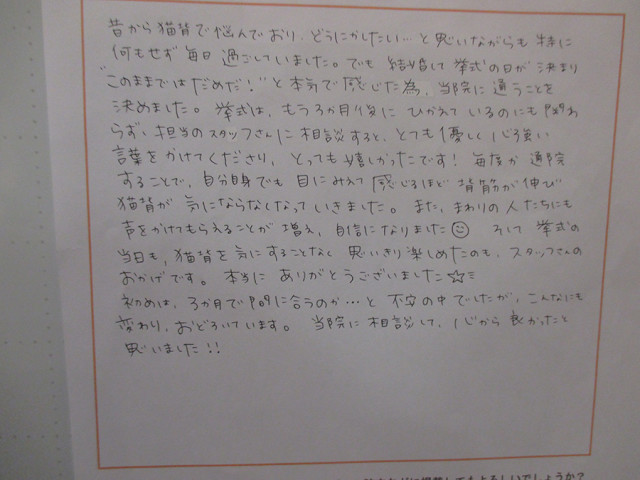 昔から猫背で悩んでおり、どうにかしたい…と思いながらも特に
何もせず毎日過ごしていました。でも結婚して挙式の日が決まり
"このままではだめだ!"と本気で感じた為、当院に通うことを
決めました。挙式は、もう3か月後にひかえているのにも関わ
らず、担当のスタッフさんに相談すると、とても優しく心強い
言葉をかけてくださり、とっても嬉しかったです!毎度か通院
することで、自分自身でも目にみえて感じるほど背筋が伸び
猫背が気にならなくなっていきました。また、まわりの人たちにも
声をかけてもらえることが増え、自信になりました☺ そして挙式の
当日も、猫背を気にすることなく思いきり楽しめたのも、スタッフさんの
おかげです。本当にありがとうございました☆ミ
初めは、3か月で間に合うのか…と不安の中でしたが、こんなにも
変わり、おどろいています。当院に相談して、心から良かったと
思いました!!
もよろしいでしょうか?